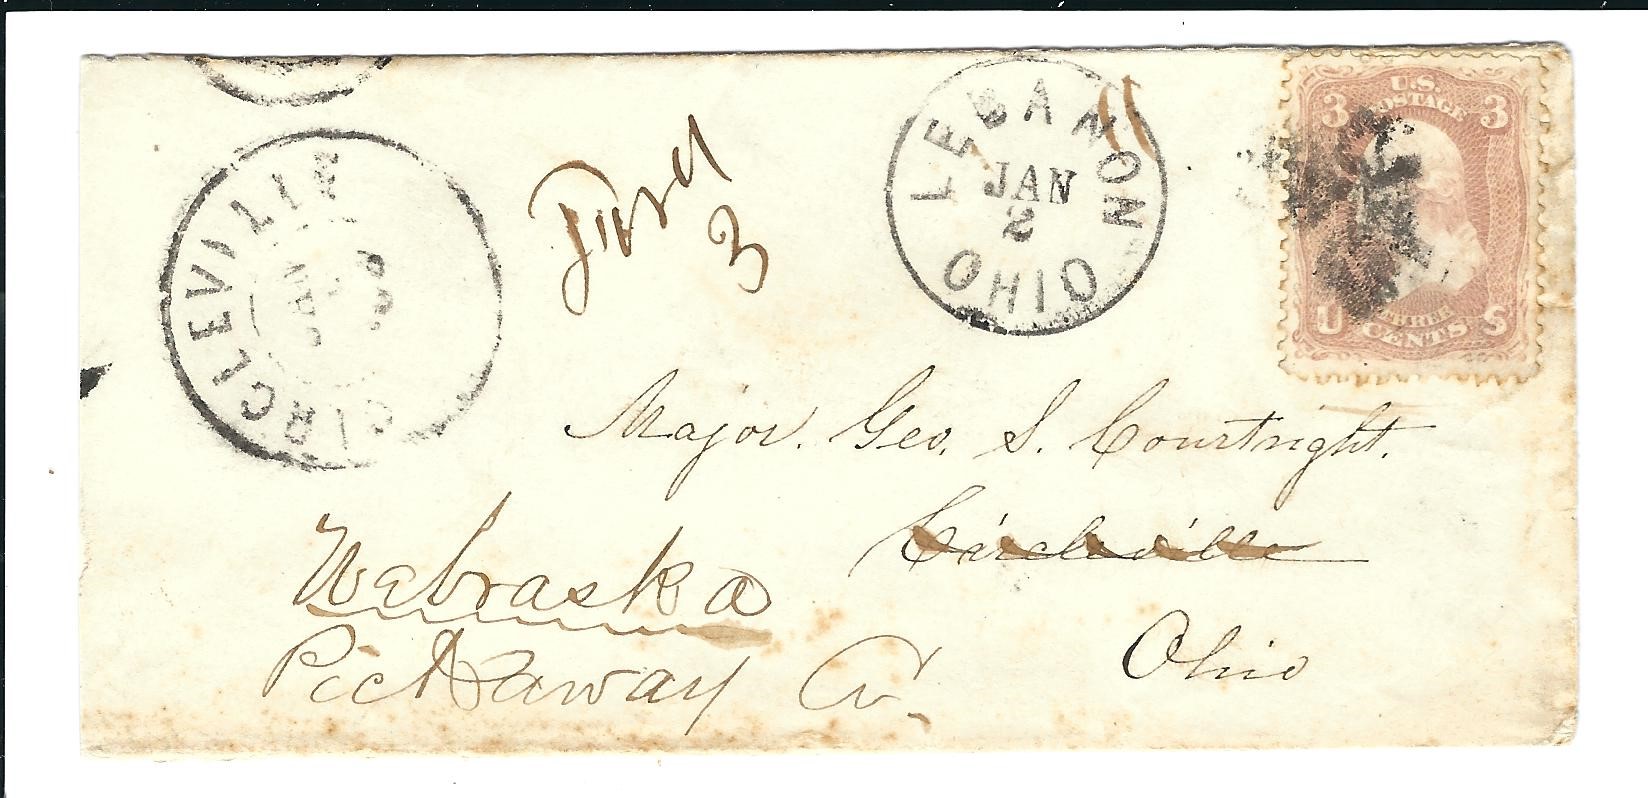 CIRCLEVILLE
JAN
LEBANON
JAN
2
OHIO
3
U.S.
POSTAGE
3 3
THREE
U CENTS S
Major. Geo. S. Courtright.
Circleville
Ohio
Nebraska
Pickaway Co.